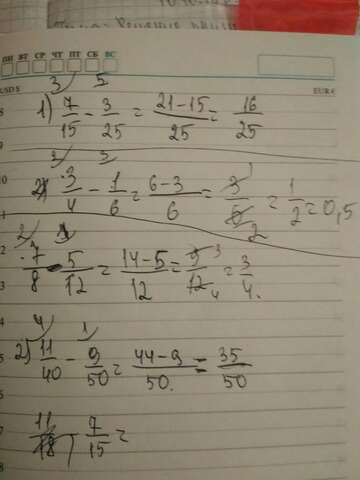 ПН ВТ СР ЧТ ПТ СБ ВС
USD $ EUR €
3 5
1) 7/15 - 3/25 = (21-15)/25 = 16/25
3/4 - 1/6 = (6-3)/6 = 3/6 = 1/2 = 0,5
7/8 - 5/12 = (14-5)/12 = 9/12 = 3/4.
4 1
2) 11/40 - 9/50 = (44-9)/50. = 35/50
11/18 - 7/15 =